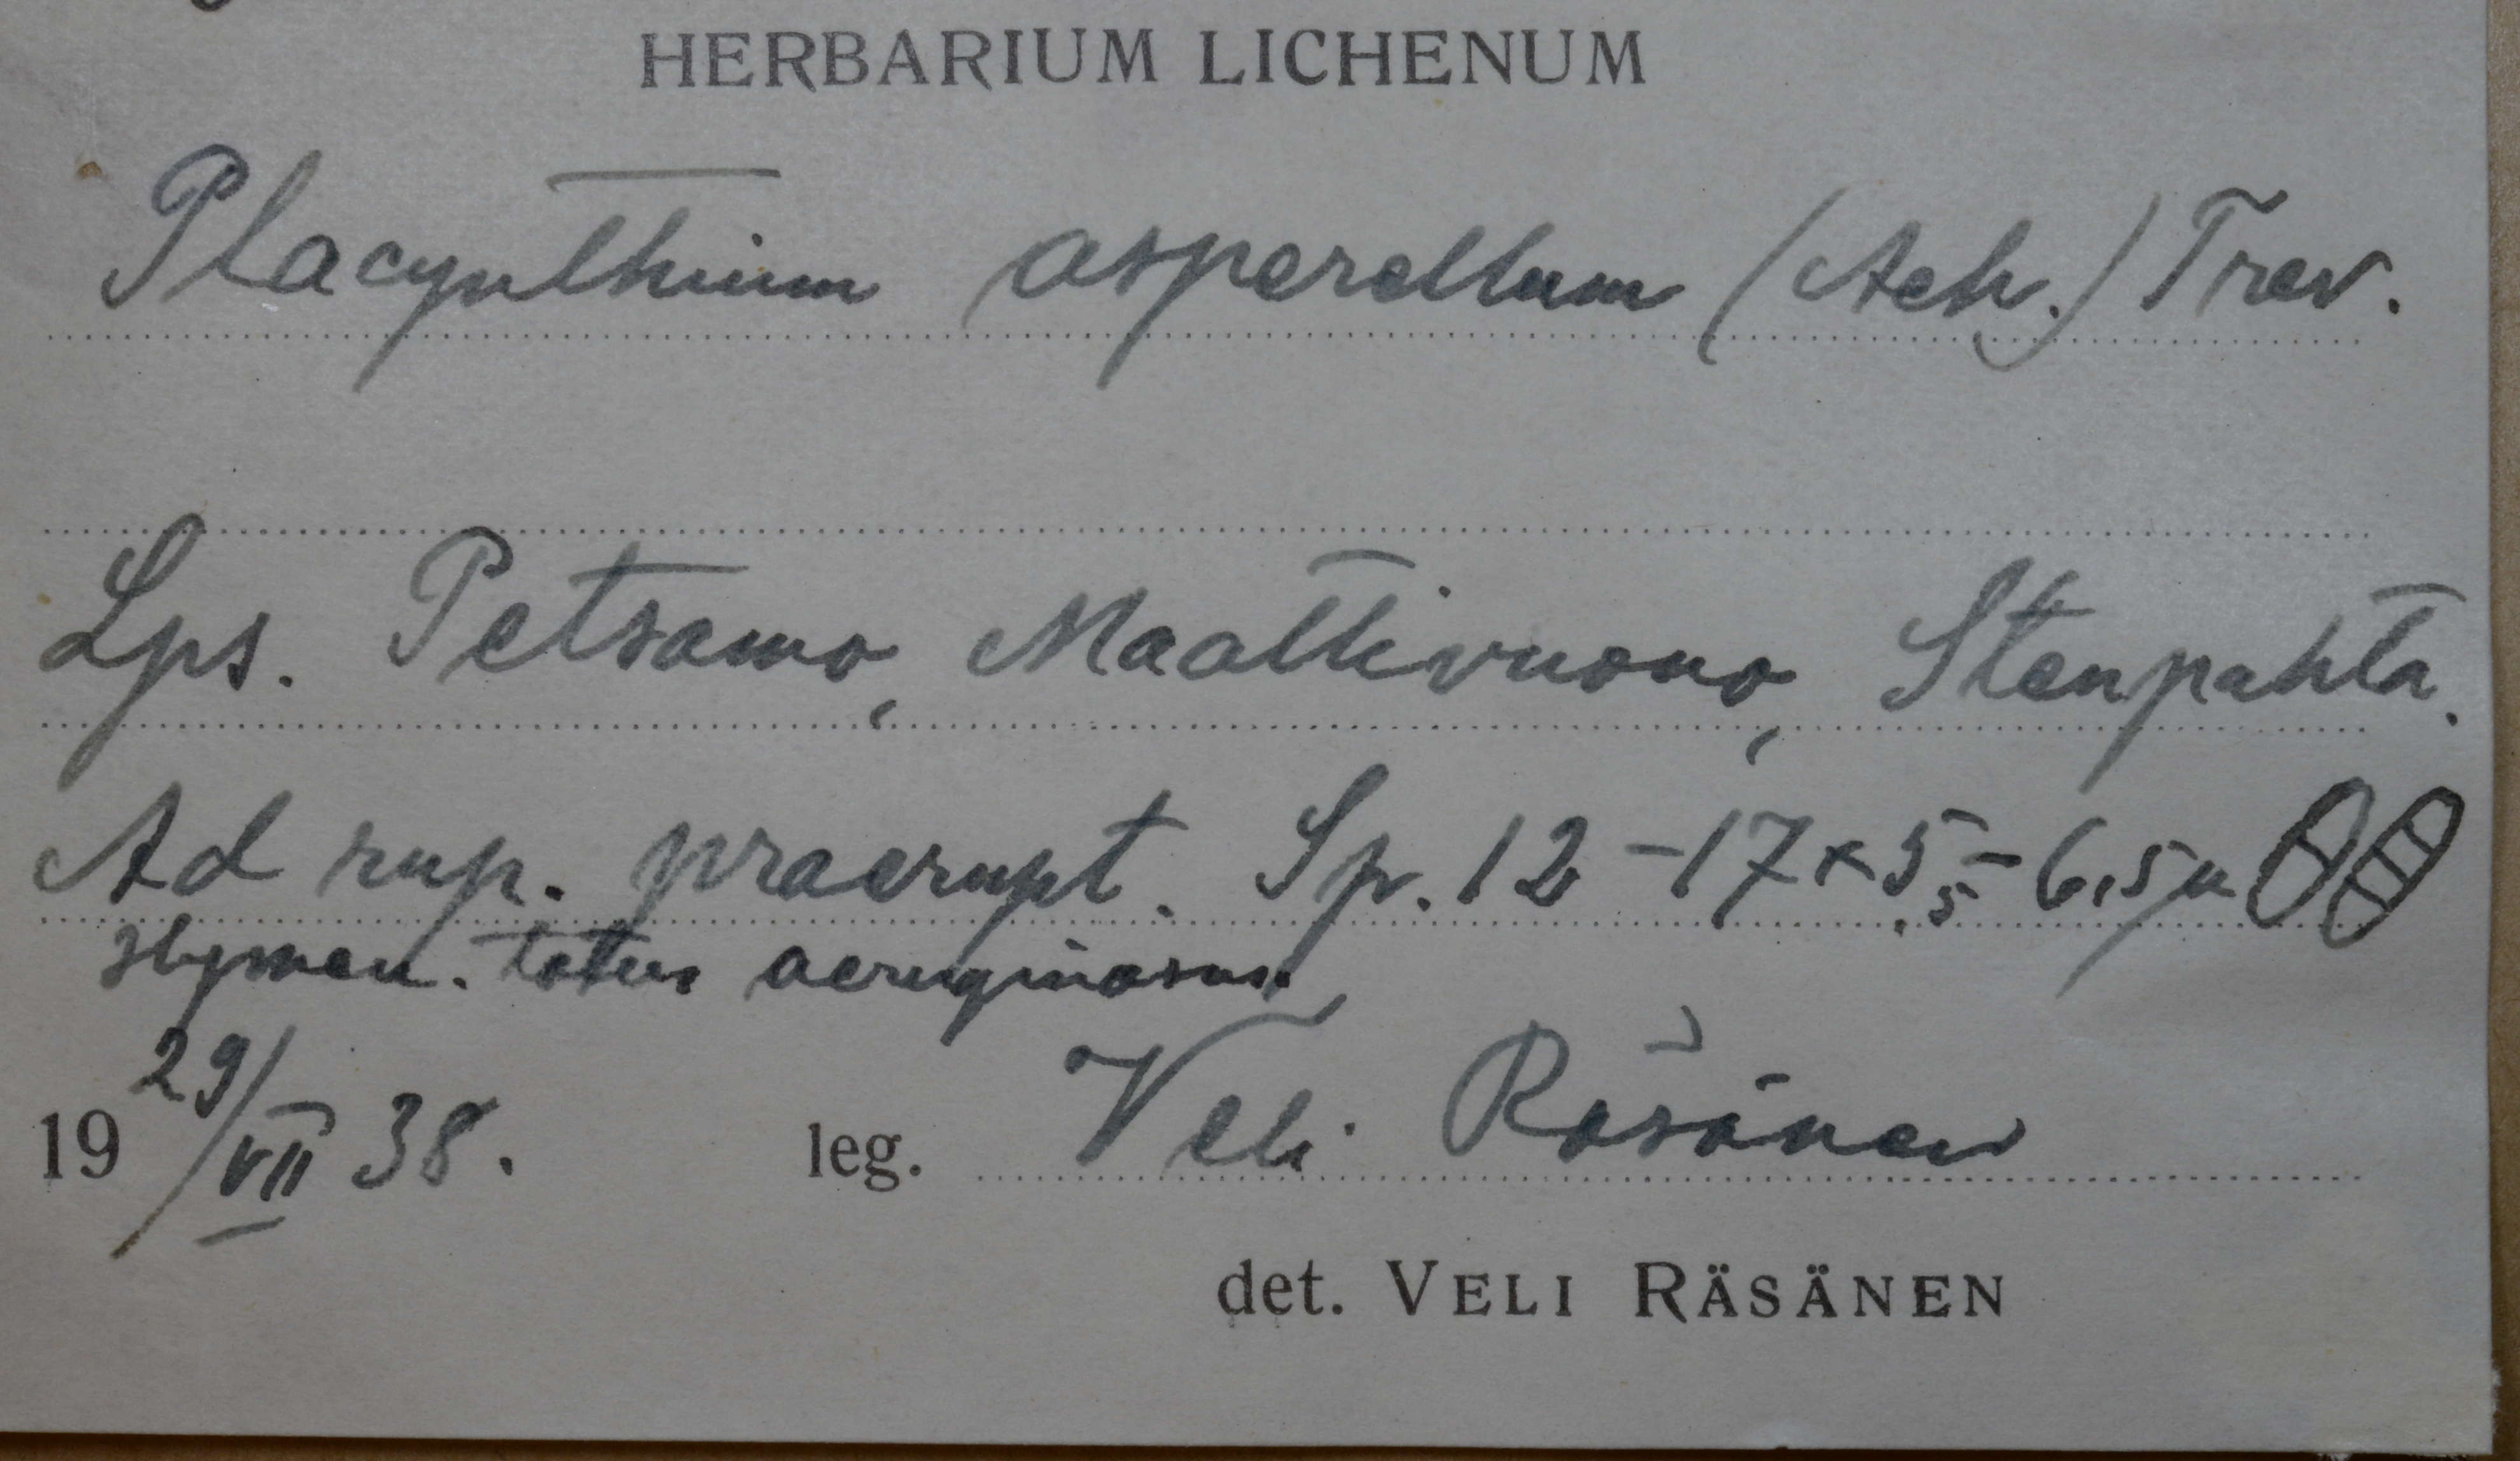 HERBARIUM LICHENUM
Placynthium asperellum (Ach.) Trev.
Lps. Petsamo, Maattivuono, Stenpahta.
Ad rup. praerupt. Sp. 12-17×5,5-6,5µ
Hymen. totus aeruginosus.
19 29/VII 38. leg. Veli Räsänen
det. VELI RÄSÄNEN